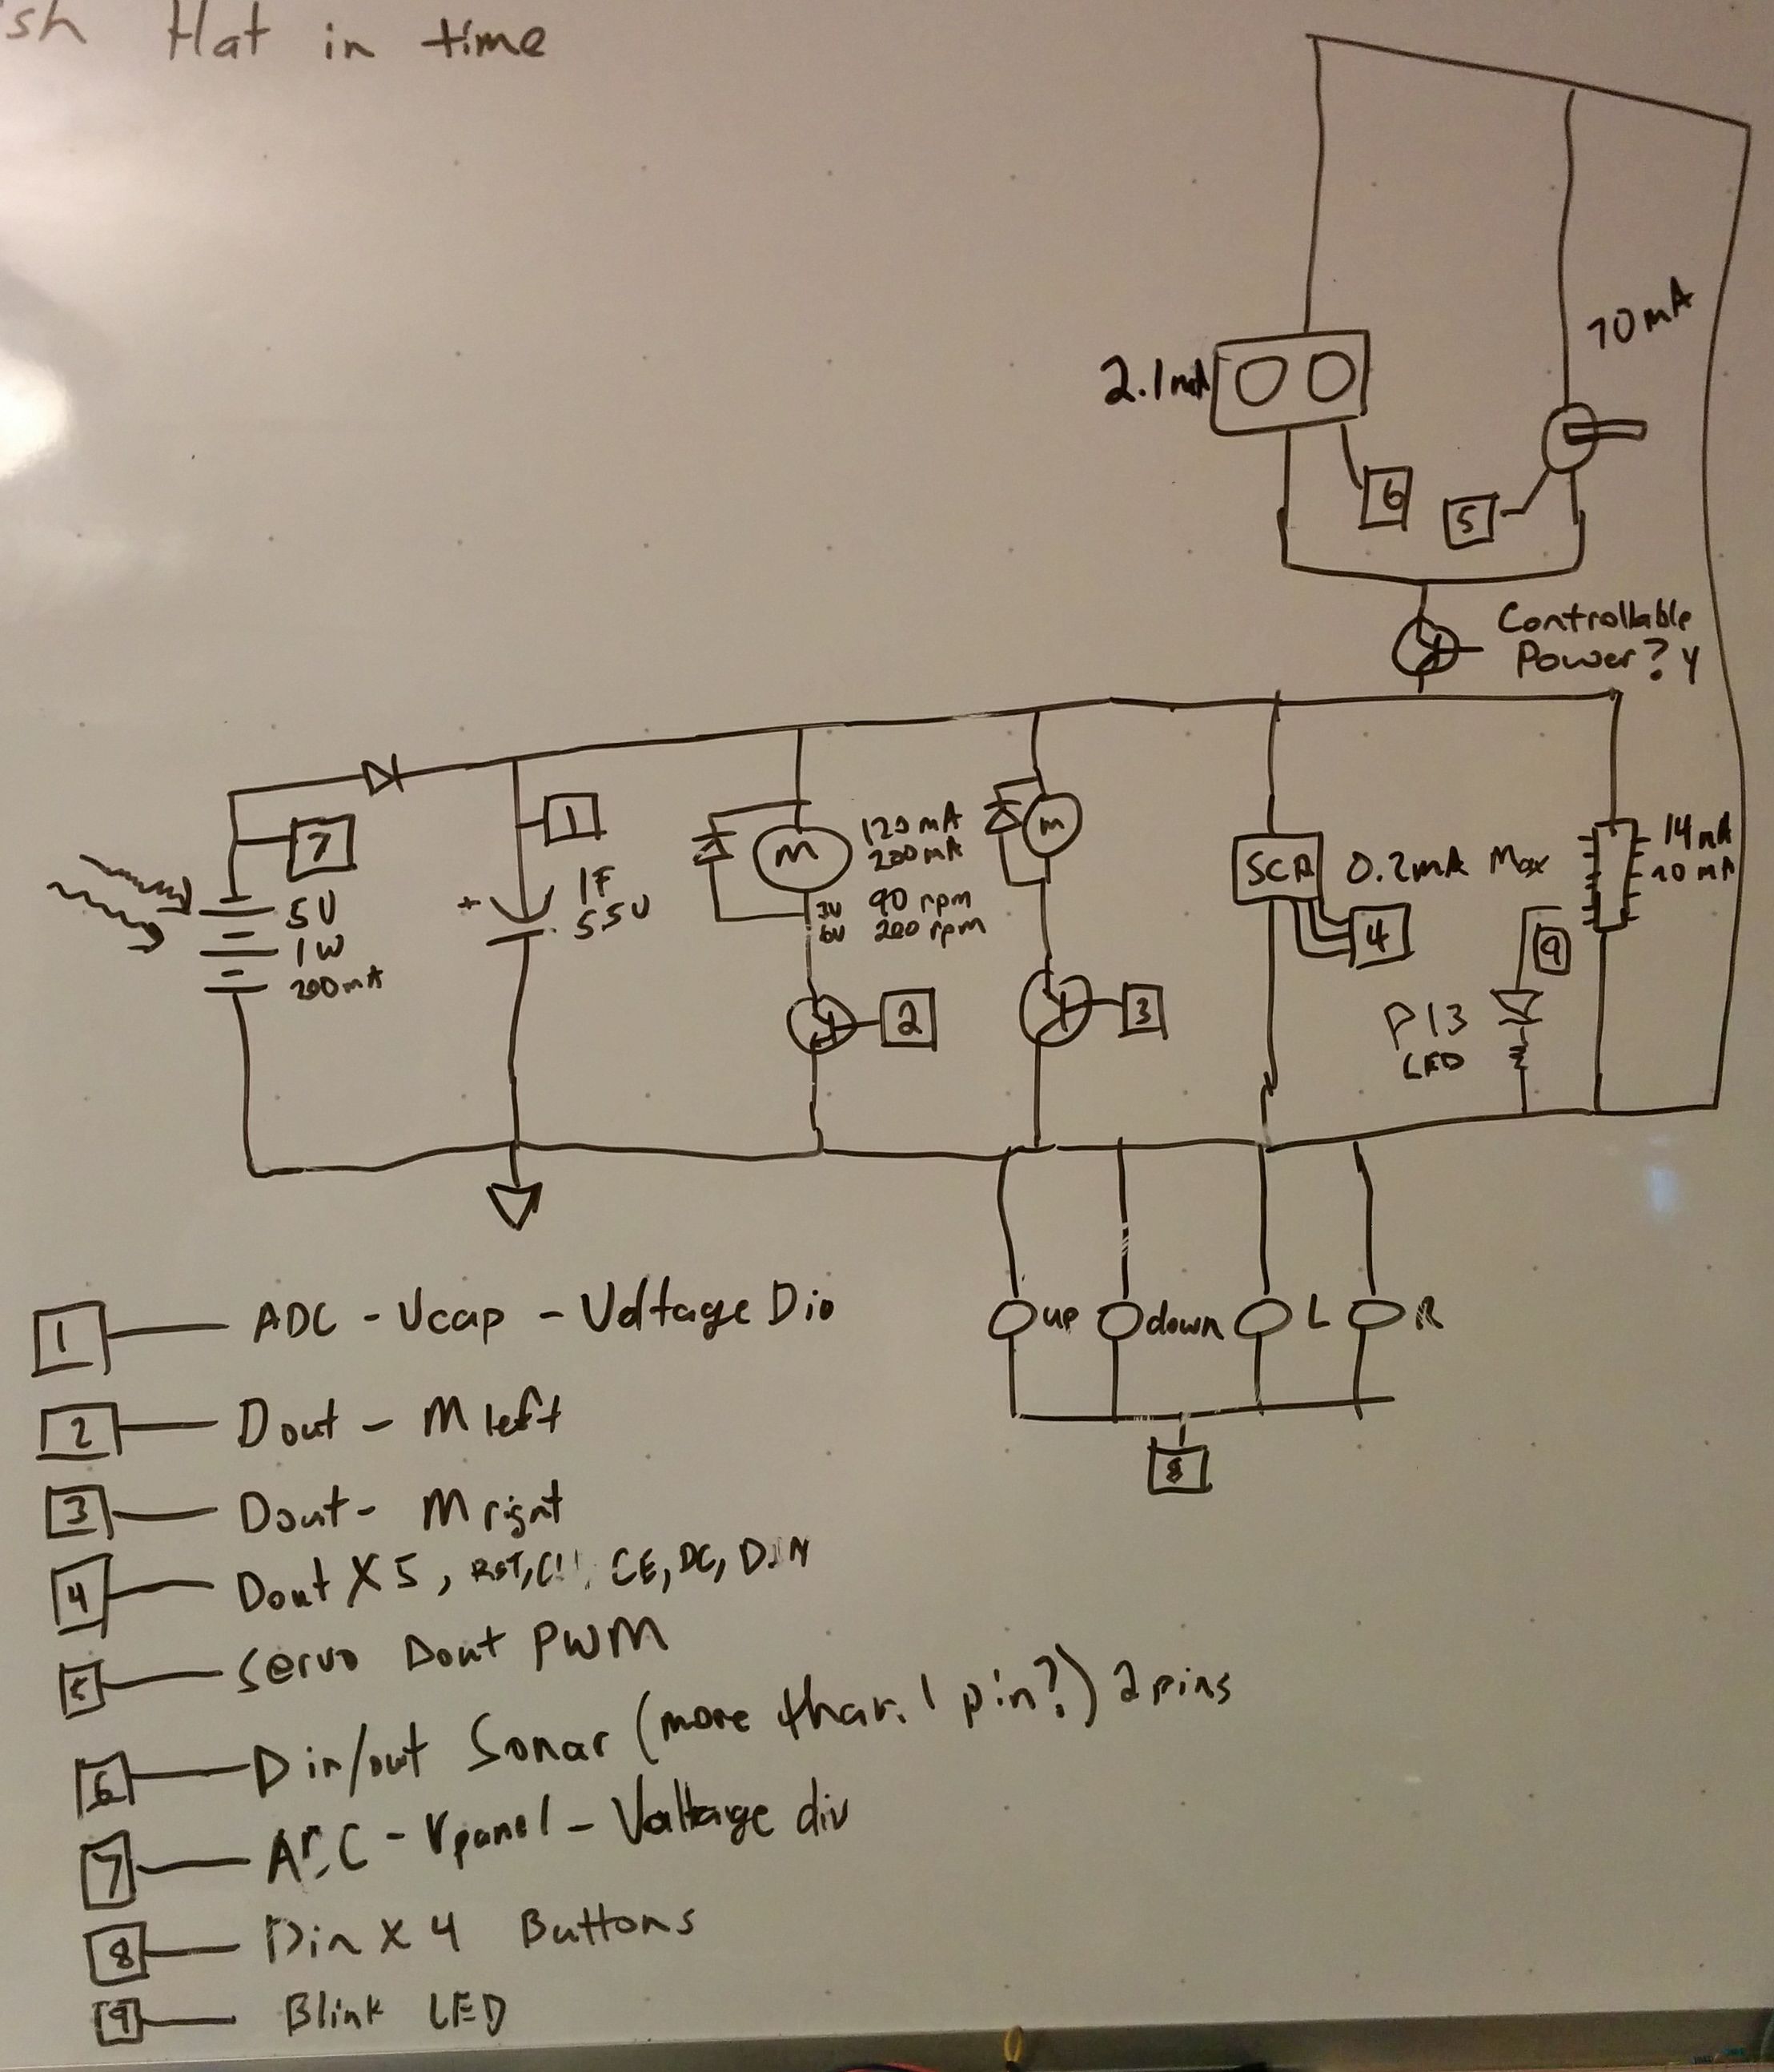 sh Hat in time
10 mA
2.1mA
6
5
Controllable
Power? Y
7
5V
1W
200mA
1
+
1F
5.5V
M
120 mA
200 mA
3V 90 rpm
6V 200 rpm
2
m
3
SCR 0.2mA Max
4
14mA
10 mA
9
P13
LED
up down L R
8
1 ADC - Vcap - Voltage Div
2 Dout - M left
3 Dout - M right
4 Dout X 5, RST, CE, DC, DIN
5 Servo Dout PWM
6 Din/out Sonar (more than 1 pin?) 2 pins
7 ADC - Vpanel - Voltage div
8 Din X 4 Buttons
9 Blink LED